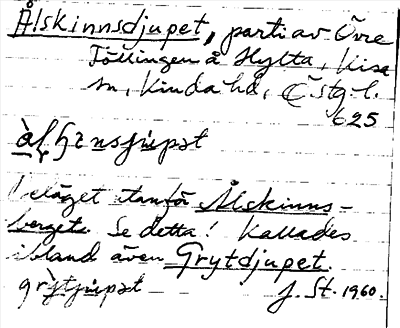 Ålskinnsdjupet, parti av Övre
Föllingen å Hylta, Kisa
sn, Kinda hd, Östg. l.
625
Beläget utanför Ålskinns-
berget. Se detta! Kallades
ibland även Grytdjupet.
J. St. 1960.